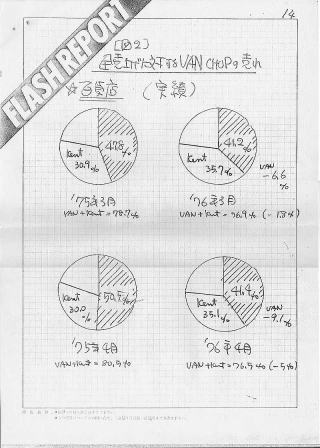 14
FLASH REPORT
[図2]
総売上げに対するVAN SHOPの売れ
☆百貨店 (実績)
47.8%
Kent
30.9%
41.2%
Kent
35.7%
VAN
-6.6
%
'75年3月
VAN+Kent=78.7%
'76年3月
VAN+Kent=76.9% (-1.8%)
50.5%
Kent
30.0
%
41.4%
Kent
35.1%
VAN
-9.1%
'75年4月
VAN+Kent=80.5%
'76年4月
VAN+Kent=76.5% (-5%)